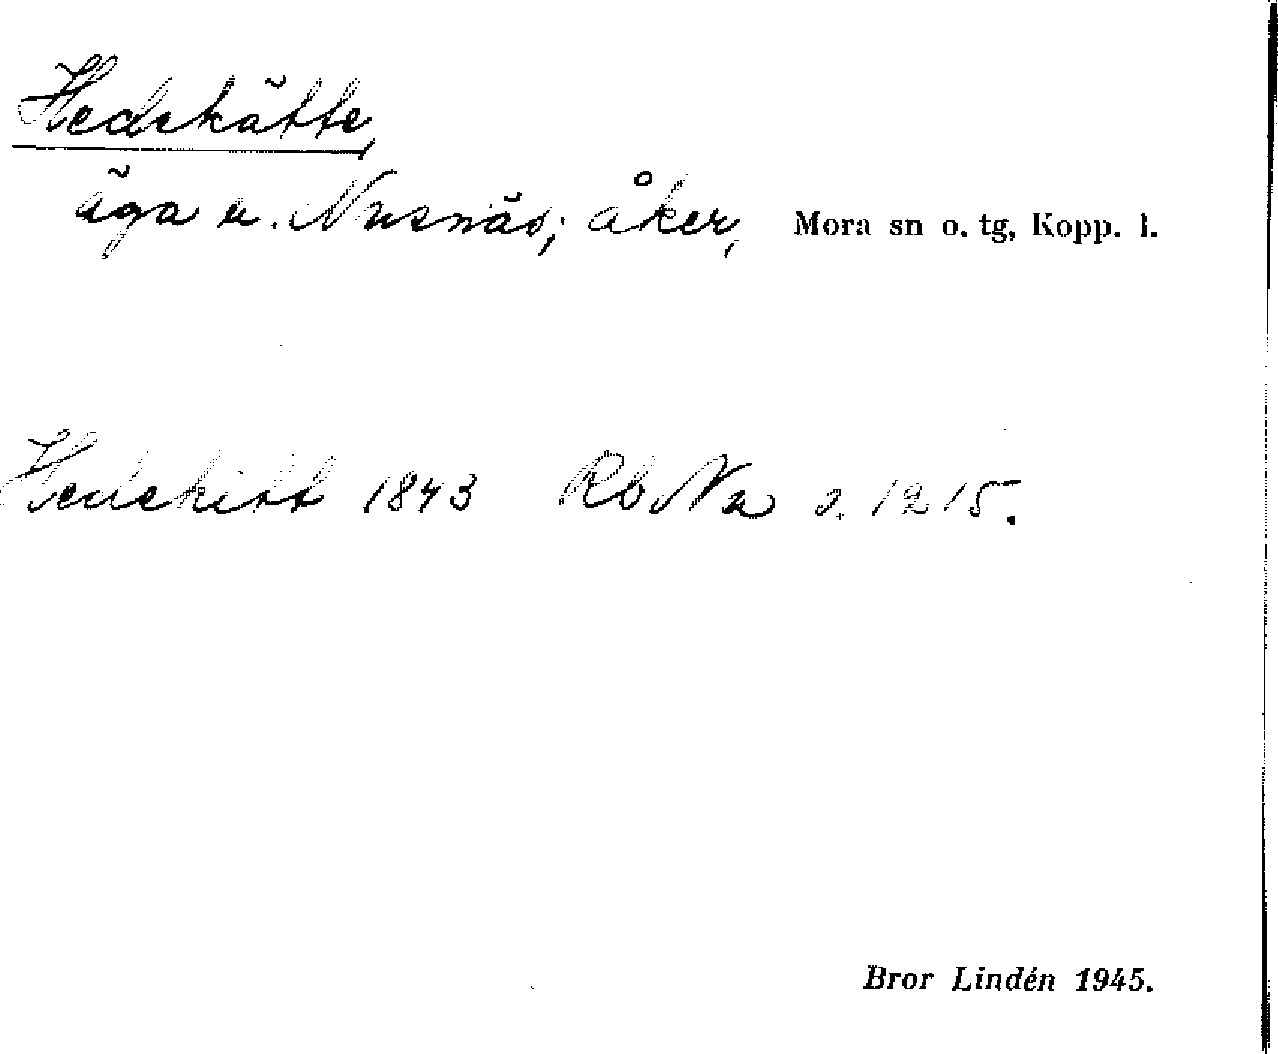 Hedekätte,
äga u. Nusnäs; åker, Mora sn o. tg, Kopp. l.
Hedekitt 1843 Rb Na s. 1215.
Bror Lindén 1945.